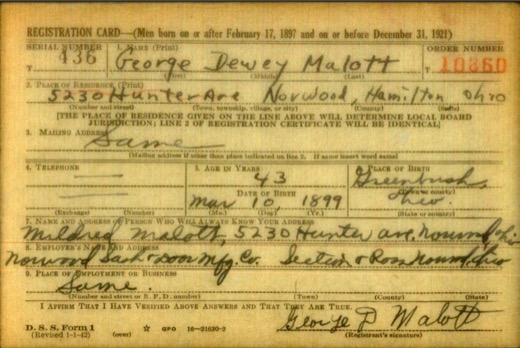 REGISTRATION CARD—(Men born on or after February 17, 1897 and on or before December 31, 1921)
SERIAL NUMBER 1. NAME (Print) ORDER NUMBER
T 436 George Dewey Malott T 10360
(First) (Middle) (Last)
2. PLACE OF RESIDENCE (Print)
5230 Hunter Ave Norwood, Hamilton Ohio
(Number and street) (Town, township, village, or city) (County) (State)
[THE PLACE OF RESIDENCE GIVEN ON THE LINE ABOVE WILL DETERMINE LOCAL BOARD
JURISDICTION; LINE 2 OF REGISTRATION CERTIFICATE WILL BE IDENTICAL]
3. MAILING ADDRESS
Same
[Mailing address if other than place indicated on line 2. If same insert word same]
4. TELEPHONE 5. AGE IN YEARS 6. PLACE OF BIRTH
— 43 Greenbush,
DATE OF BIRTH (Town or county)
— Mar 10, 1899 Ohio.
(Exchange) (Number) (Mo.) (Day) (Yr.) (State or country)
7. NAME AND ADDRESS OF PERSON WHO WILL ALWAYS KNOW YOUR ADDRESS
Mildred Malott, 5230 Hunter ave. Norwood Ohio
8. EMPLOYER'S NAME AND ADDRESS
Norwood Sash & Door Mfg. Co. Section & Ross Norwood, Ohio
9. PLACE OF EMPLOYMENT OR BUSINESS
Same.
(Number and street or R. F. D. number) (Town) (County) (State)
I AFFIRM THAT I HAVE VERIFIED ABOVE ANSWERS AND THAT THEY ARE TRUE.
George D Malott
D. S. S. Form 1 ☆ GPO 16—21630-2 (Registrant's signature)
(Revised 1-1-42) (over)